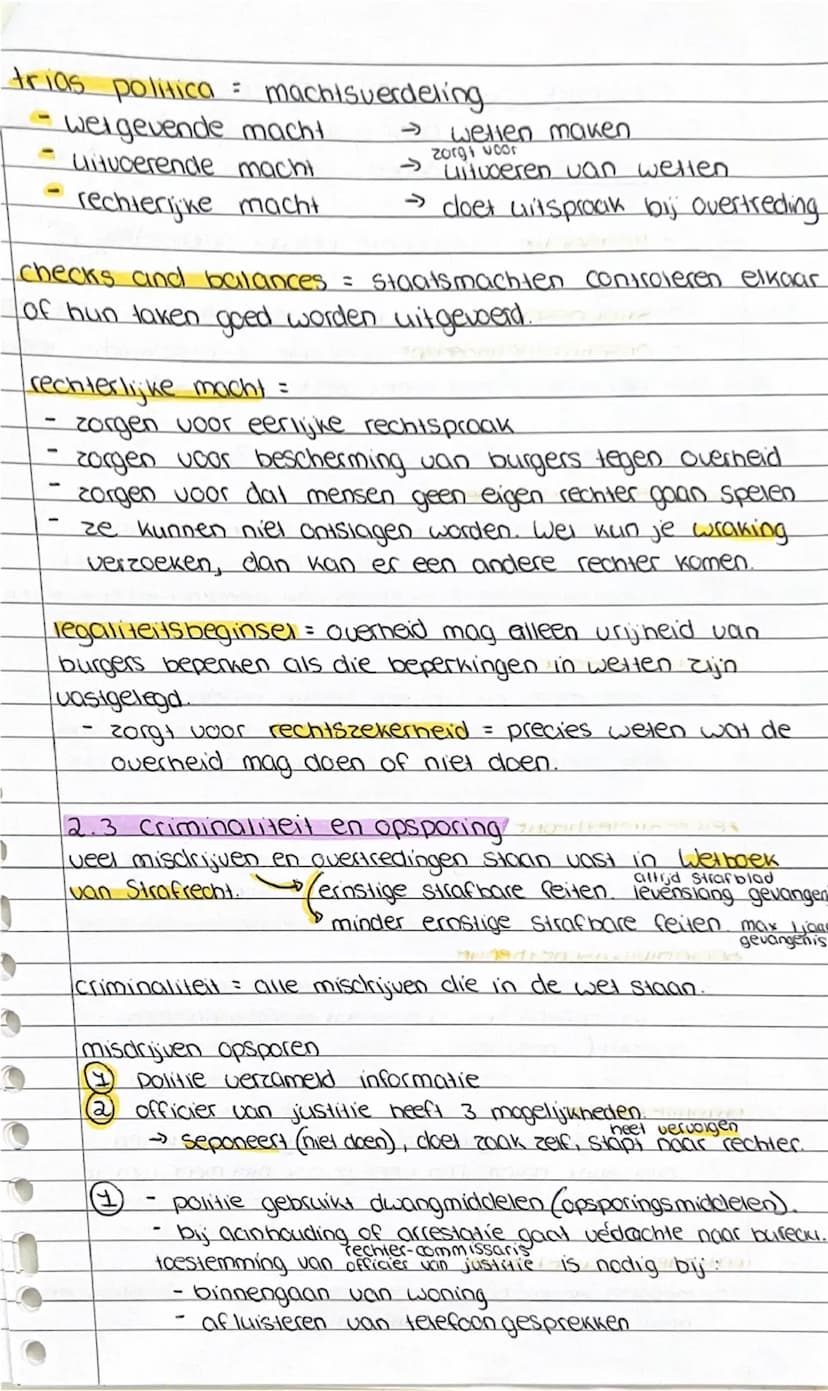 trias politica = machtsverdeling
- wetgevende macht → wetten maken
- uitvoerende macht → zorgt voor uitvoeren van wetten
- rechterijke macht → doet uitspraak bij overtreding
checks and balances = staatsmachten controleren elkaar
of hun taken goed worden uitgevoerd.
rechterlijke macht =
- zorgen voor eerlijke rechtspraak
- zorgen voor bescherming van burgers tegen overheid
- zorgen voor dat mensen geen eigen rechter gaan spelen
- ze kunnen niet ontslagen worden. Wel kun je wraking
verzoeken, dan kan er een andere rechter komen.
legaliteitsbeginsel = overheid mag alleen vrijheid van
burgers beperken als die beperkingen in wetten zijn
vastgelegd.
- zorgt voor rechtszekerheid = precies weten wat de
overheid mag doen of niet doen.
2.3 Criminaliteit en opsporing
veel misdrijven en overtredingen staan vast in Wetboek
van Strafrecht. → ernstige strafbare feiten. altijd strafblad levenslang gevangen
minder ernstige strafbare feiten. max 1 jaar
gevangenis
criminaliteit = alle misdrijven die in de wet staan.
misdrijven opsporen
1 politie verzameld informatie
2 officier van justitie heeft 3 mogelijkheden.
→ seponeert (niet doen), doet zaak zelf, stapt naar rechter.
heet vervolgen
1 - politie gebruikt dwangmiddelen (opsporingsmiddelen).
- bij aanhouding of arrestatie gaat verdachte naar bureau.
rechter-commissaris
toestemming van officier van justitie is nodig bij:
- binnengaan van woning
- afluisteren van telefoongesprekken